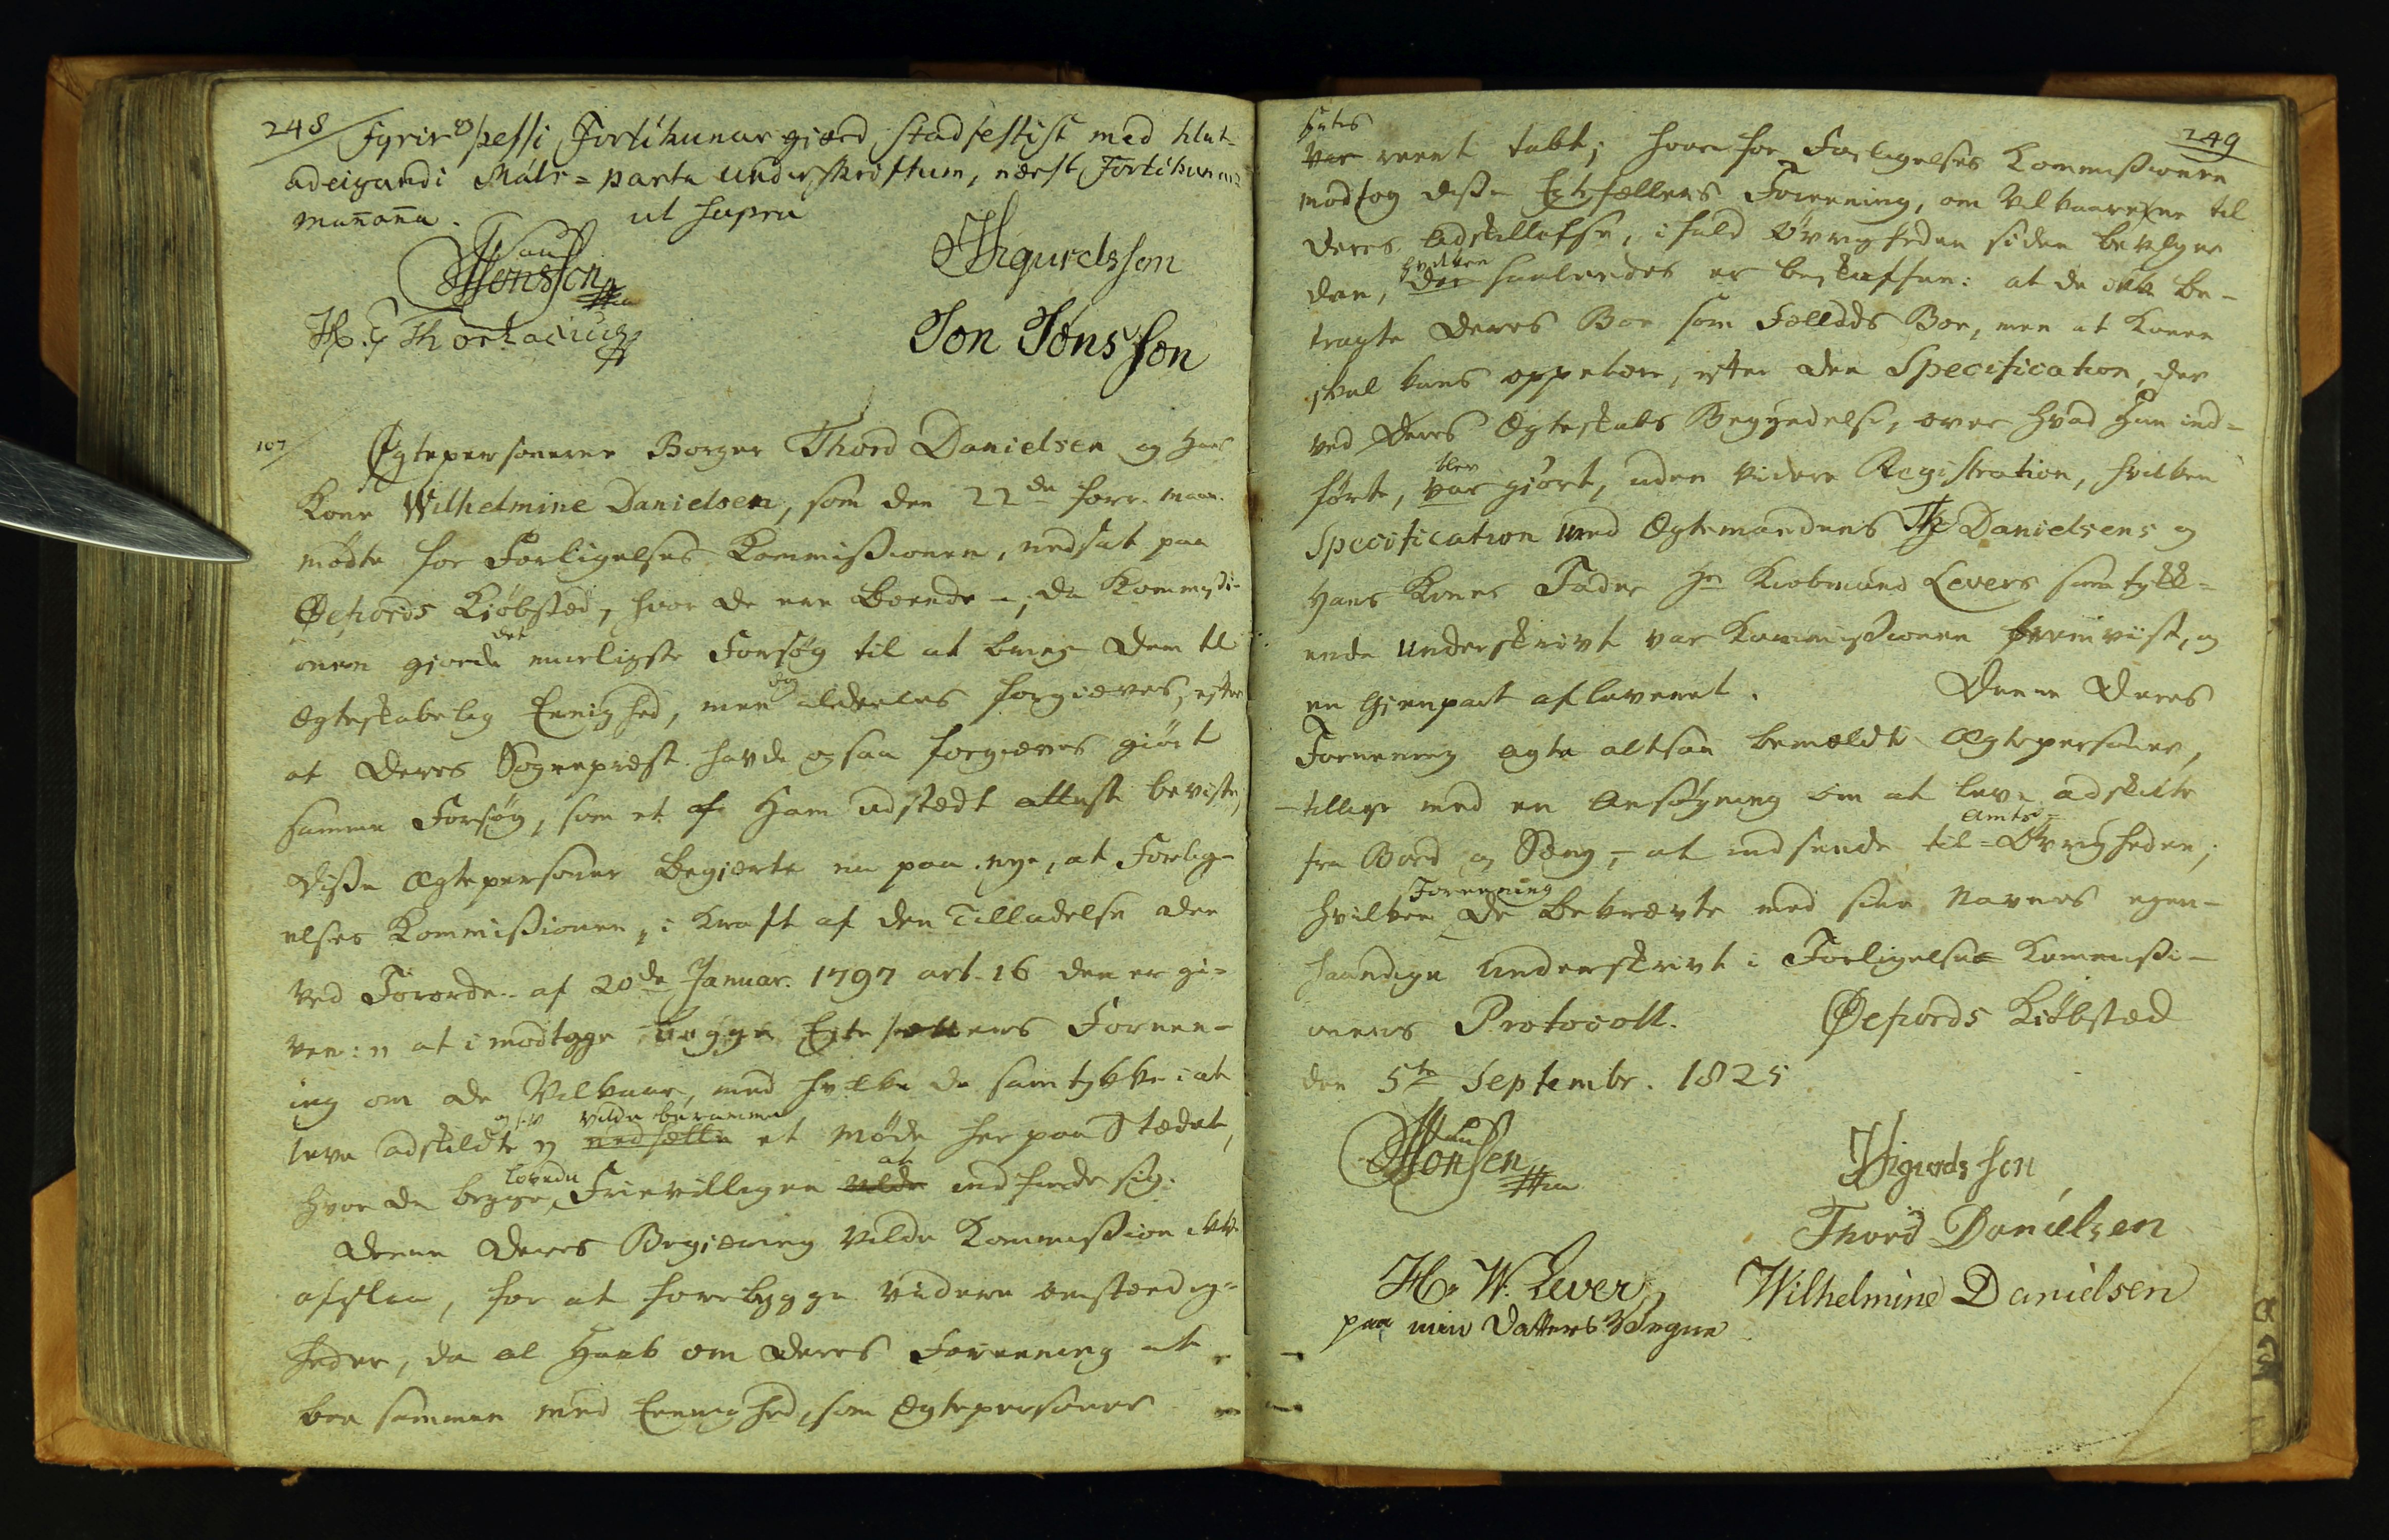 248
Fyrir þessi Forlíkunar gjørd stadfestist med hlut=
adeigandi Máls=parta underskriftum, nærst Forlikunar
mañaña. ut supra
Jonsson
HSigurdsson
H. G Thorlacius
Jon Jónsson
107/ Ægtepersonerne Borger Thord Danielsen og hans
Kone Wilhelmine Danielsen, som den 22de forr. maan.
mødte for Forligelses Kommissionen, nedsat paa
Øefiords Kiøbstæd, hvor de ere boende -, da Kommissi-
onen giorde det mueligste Forsøg til at bringe dem til
ægteskabelig Eenighed, men dog aldeeles forgiæves, efter
at deres Sognepræst havde ogsaa forgiæves giört
samme Forsøg, som et af Ham udstædt attest beviste,
Disse Ægtepersoner begjærte nu paa nye, at Forlig-
elses Kommissionen, i Kraft af den Tilladelse den
ved Forordn. af 20de Januar. 1797 art. 16 den er gi-
ven: at imodtage begge Egtefællers Foreen-
ing om de Vilkaar, med hvilke de samtykke i at
leve adskildte og s. v. vilde beramme nedsætte et Møde her paa Stædet,
hvor de begge lovede Frievilligen at vilde indfinde sig.
Denne deres Begiæring vilde Kommission ikke
afslaa, for at forebygge videre omstændig-
heder, da al Haab om deres Foreening at
boe sammen med Eenighed, som Ægtepersoner
249
syntes
var reent tabt; hvorfor Forligelses Kommissionen
modtog disse Egtefællers Foreening, om Vilkaarene til
deres Adskillelse, ifald Øvrigheden siden bevilger
den, hvilken der saaledes er beskaffen: at de ikke be-
tragte deres Boe som Fælleds Boe, men at Konen
skal kuns oppebære, efter den Specification, der
ved deres Ægteskabs Begyndelse, over hvad Hun ind-
førte, blev var giort, uden videre Registration, hvilken
Specification med Ægtemandens Th Danielsens og
Hans Kones Fader Hr Kiøbmand Levers samtykk-
ende underskrivt var Kommissionen foreviist, og
en Gjenpart afleveret. Denne deres
Foreening agte altsaa bemældte Ægtepersoner,
- tillige med en Ansøgning om at leve adskilte
fra Bord og Sæng, - at indsende til Amts= Øvrigheden;
hvilken Foreening de bekrævte med sine Navnes egen-
hændige Underskrivt i Forligelses Kommissi-
onens Protocoll. Øefiords Kiöbstæd
den 5te Septembr. 1825
Jonsen
HSigurdsson
Thord Danielsen
H. W. Lever Wilhelmine Danielsen
paa min Datters Vegne